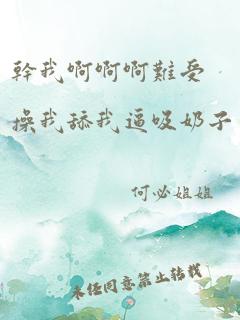 幹我啊啊啊難受
操我舔我逼吸奶子
何必姐姐
未经同意禁止转载